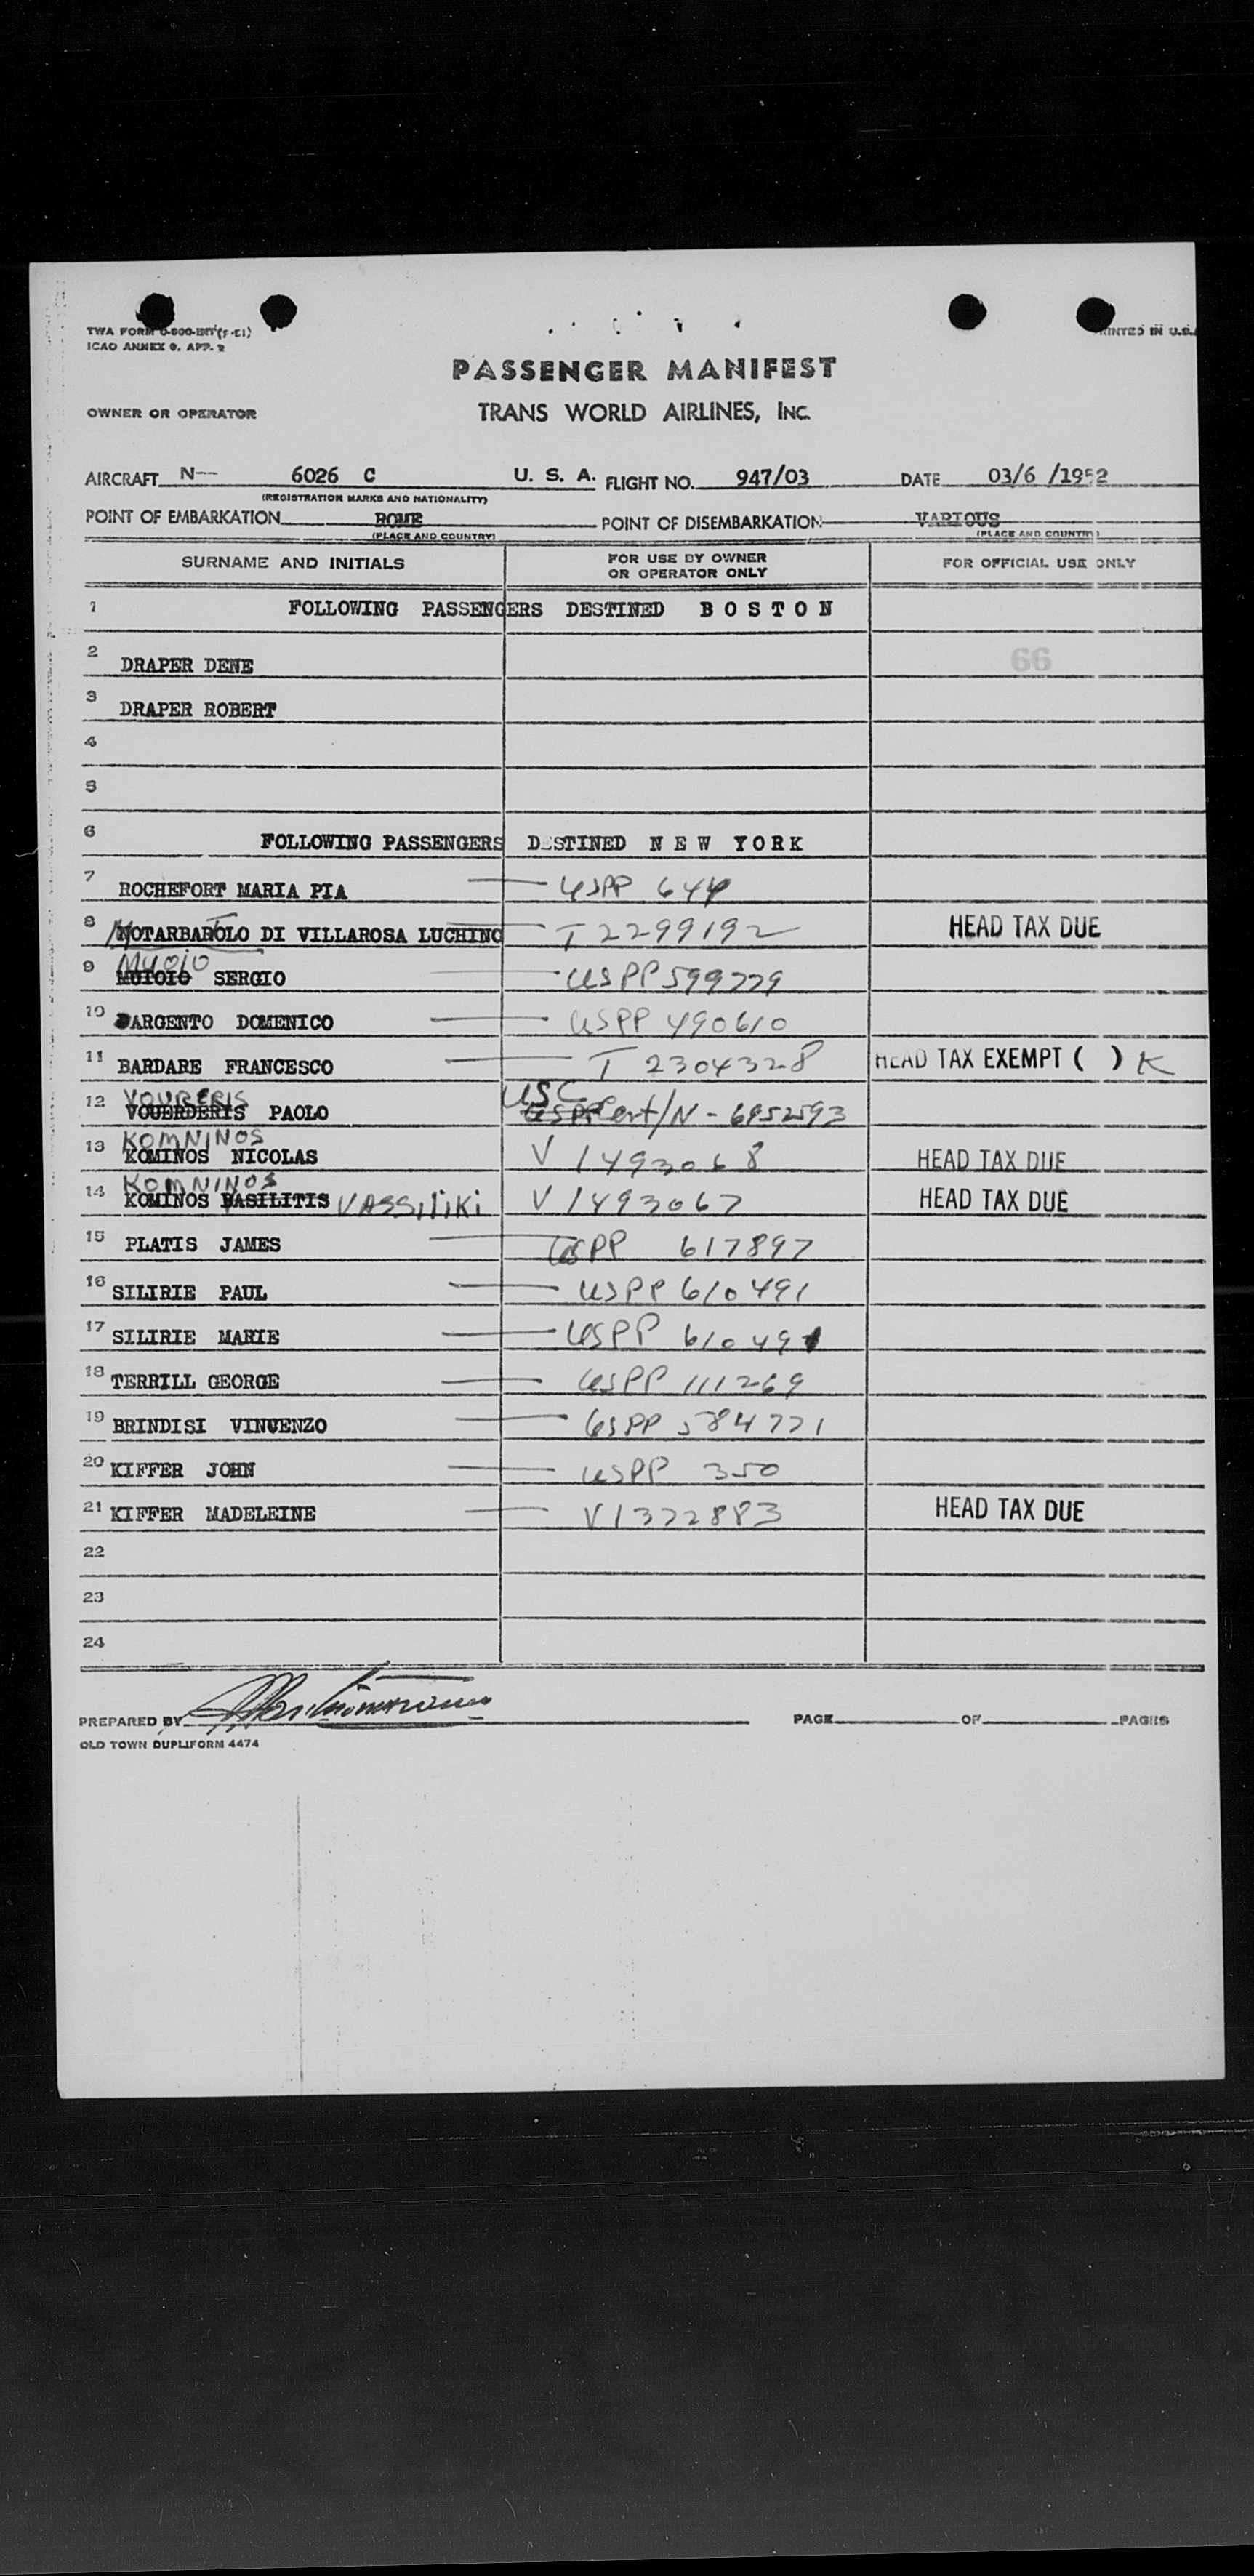 TWA FORM 0-800-INT (5-51)
ICAO ANNEX 9, APP. 2
PRINTED IN U.S.A.
PASSENGER MANIFEST
OWNER OR OPERATOR TRANS WORLD AIRLINES, INC.
AIRCRAFT N-- 6026 C U. S. A. FLIGHT NO. 947/03 DATE 03/6 /1952
(REGISTRATION MARKS AND NATIONALITY)
POINT OF EMBARKATION ROME POINT OF DISEMBARKATION VARIOUS
(PLACE AND COUNTRY) (PLACE AND COUNTRY)
SURNAME AND INITIALS FOR USE BY OWNER OR OPERATOR ONLY FOR OFFICIAL USE ONLY
1 FOLLOWING PASSENGERS DESTINED B O S T O N
2 DRAPER DENE 66
3 DRAPER ROBERT
4
5
6 FOLLOWING PASSENGERS DESTINED N E W YORK
7 ROCHEFORT MARIA PIA USPP 644
8 NOTARBAROLO DI VILLAROSA LUCHINO T 2299192 HEAD TAX DUE
Muoio
9 MUTOIO SERGIO USPP 599779
10 DARGENTO DOMENICO USPP 490610
11 BARDARE FRANCESCO T 2304328 HEAD TAX EXEMPT ( ) K
VOURERIS USC
12 VOUERDERIS PAOLO USPP Cert/N - 6952593
KOMNINOS
13 KOMINOS NICOLAS V 1493068 HEAD TAX DUE
KOMNINOS
14 KOMINOS BASILITIS VASSILIKI V 1493067 HEAD TAX DUE
15 PLATIS JAMES USPP 617897
16 SILIRIE PAUL USPP 610491
17 SILIRIE MARIE USPP 610491
18 TERRILL GEORGE USPP 111269
19 BRINDISI VINCENZO USPP 584771
20 KIFFER JOHN USPP 350
21 KIFFER MADELEINE V1372883 HEAD TAX DUE
22
23
24
PREPARED BY PAGE OF PAGES
OLD TOWN DUPLIFORM 4474